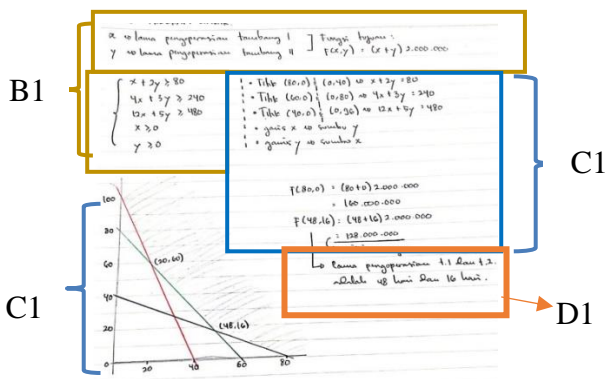 B1
x → lama pengoperasian tambang I
y → lama pengoperasian tambang II
] Fungsi tujuan :
F(x,y) = (x+y) 2.000.000
x + 2y ≥ 80
4x + 3y ≥ 240
12x + 5y ≥ 480
x ≥ 0
y ≥ 0
C1
• Titik (80,0) ; (0,40) → x + 2y = 80
• Titik (60,0) ; (0,80) → 4x + 3y = 240
• Titik (40,0) ; (0,96) → 12x + 5y = 480
• garis x → sumbu y
• garis y → sumbu x
F(80,0) = (80+0) 2.000.000
= 160.000.000
F(48,16) = (48+16) 2.000.000
= 128.000.000
↳ Lama pengoperasian t.1 dan t.2
adalah 48 hari dan 16 hari.
D1
C1
100
80
60
40
20
0
20
40
60
80
(20,60)
(48,16)